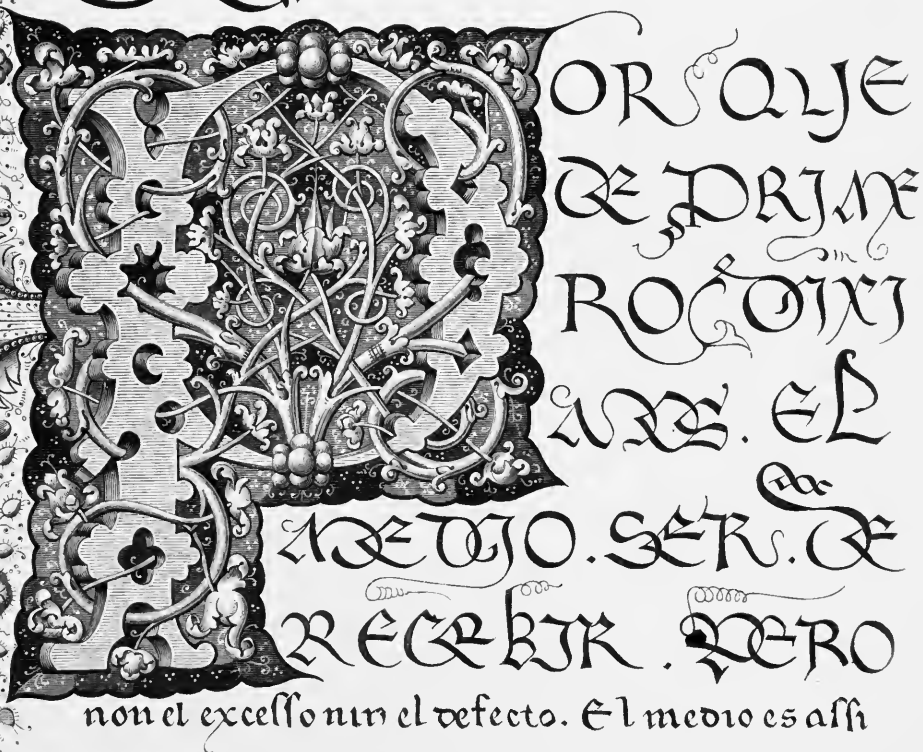 PORQUE
DE PRIME
RO DIXI
MOS. EL
MEDIO. SER. DE
RECEBIR. PERO
non el exceſſo nin el defecto. El medio es aſſi